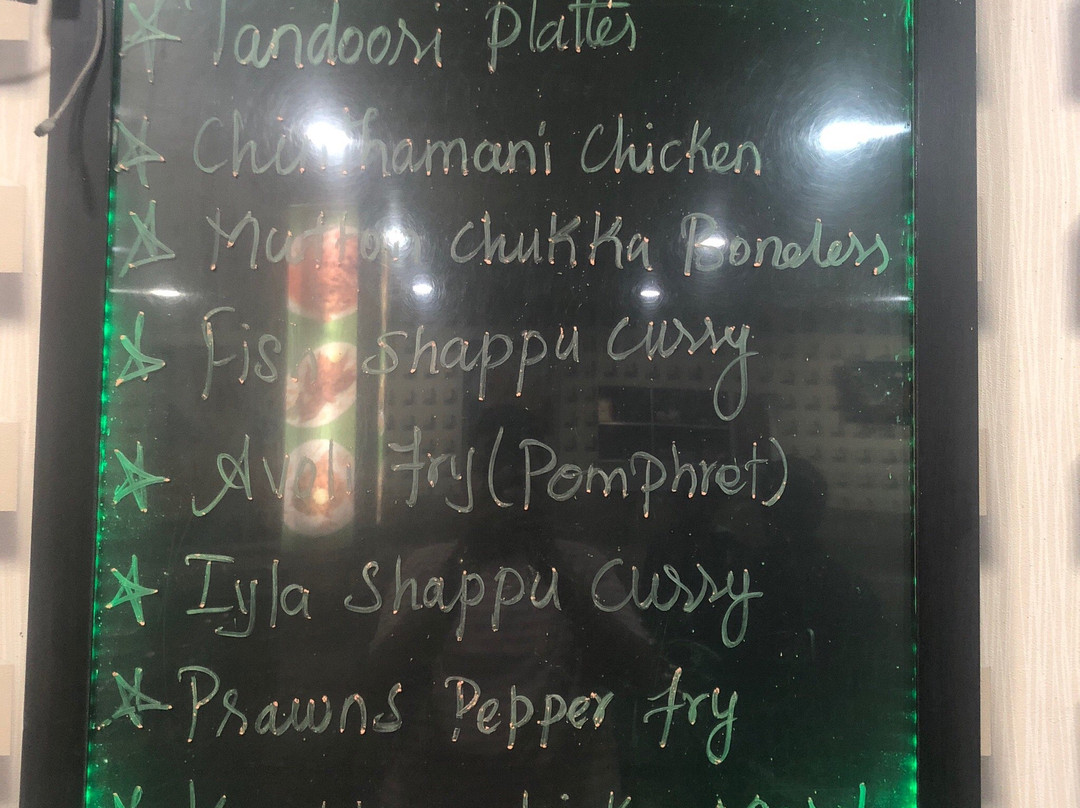 Tandoori Platter
Chinthamani Chicken
Mutton chukka Boneless
Fish Shappu Curry
Avoli Fry (Pomphret)
Iyla Shappu Curry
Prawns Pepper Fry